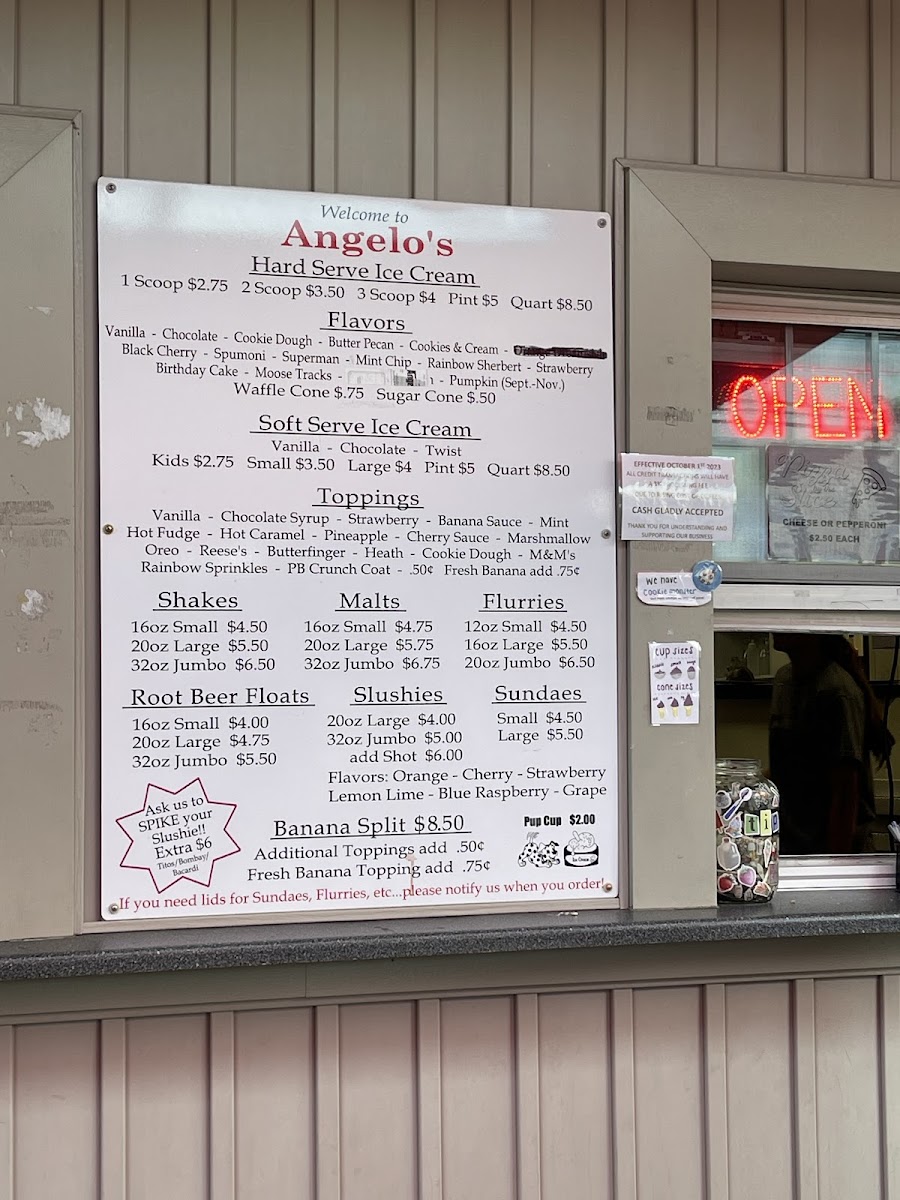 Welcome to
Angelo's
Hard Serve Ice Cream
1 Scoop $2.75 2 Scoop $3.50 3 Scoop $4 Pint $5 Quart $8.50
Flavors
Vanilla - Chocolate - Cookie Dough - Butter Pecan - Cookies & Cream -
Black Cherry - Spumoni - Superman - Mint Chip - Rainbow Sherbert - Strawberry
Birthday Cake - Moose Tracks - - Pumpkin (Sept.-Nov.)
Waffle Cone $.75 Sugar Cone $.50
Soft Serve Ice Cream
Vanilla - Chocolate - Twist
Kids $2.75 Small $3.50 Large $4 Pint $5 Quart $8.50
Toppings
Vanilla - Chocolate Syrup - Strawberry - Banana Sauce - Mint
Hot Fudge - Hot Caramel - Pineapple - Cherry Sauce - Marshmallow
Oreo - Reese's - Butterfinger - Heath - Cookie Dough - M&M's
Rainbow Sprinkles - PB Crunch Coat - .50¢ Fresh Banana add .75¢
Shakes
16oz Small $4.50
20oz Large $5.50
32oz Jumbo $6.50
Malts
16oz Small $4.75
20oz Large $5.75
32oz Jumbo $6.75
Flurries
12oz Small $4.50
16oz Large $5.50
20oz Jumbo $6.50
Root Beer Floats
16oz Small $4.00
20oz Large $4.75
32oz Jumbo $5.50
Slushies
20oz Large $4.00
32oz Jumbo $5.00
add Shot $6.00
Flavors: Orange - Cherry - Strawberry
Lemon Lime - Blue Raspberry - Grape
Sundaes
Small $4.50
Large $5.50
Ask us to
SPIKE your
Slushie!!
Extra $6
Titos/Bombay/
Bacardi
Banana Split $8.50
Additional Toppings add .50¢
Fresh Banana Topping add .75¢
Pup Cup $2.00
If you need lids for Sundaes, Flurries, etc...please notify us when you order!
OPEN
EFFECTIVE OCTOBER 1ST 2023
ALL CREDIT TRANSACTIONS WILL HAVE
CASH GLADLY ACCEPTED
THANK YOU FOR UNDERSTANDING AND
SUPPORTING OUR BUSINESS
CHEESE OR PEPPERONI
$2.50 EACH
We have
cookie monster
cup sizes
cone sizes